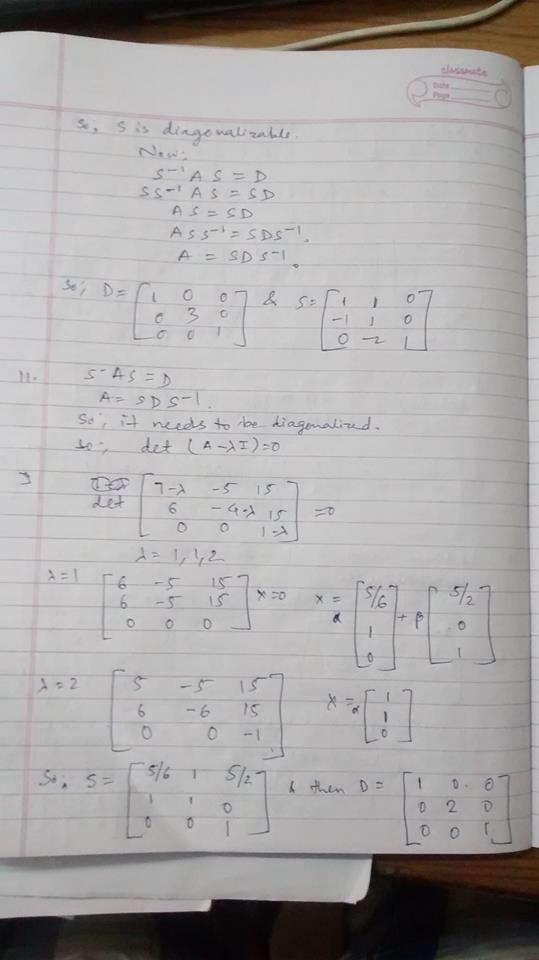 classmate
Date
Page
So; S is diagonalizable.
Now;
S⁻¹ A S = D
S S⁻¹ A S = S D
A S = S D
A S S⁻¹ = S D S⁻¹.
A = S D S⁻¹.
So; D = [1 0 0; 0 3 0; 0 0 1] & S = [1 1 0; -1 1 0; 0 -2 1]
11. S⁻AS = D
A = S D S⁻¹.
So; it needs to be diagonalized.
So; det (A-λI)=0
det [7-λ -5 15; 6 -4-λ 15; 0 0 1-λ] = 0
λ = 1, 1, 2
λ=1 [6 -5 15; 6 -5 15; 0 0 0] x=0 x = α [5/6; 1; 0] + β [5/2; 0; 1]
λ=2 [5 -5 15; 6 -6 15; 0 0 -1] x = α [1; 1; 0]
So, S = [5/6 1 5/2; 1 1 0; 0 0 1] & then D = [1 0 0; 0 2 0; 0 0 1]